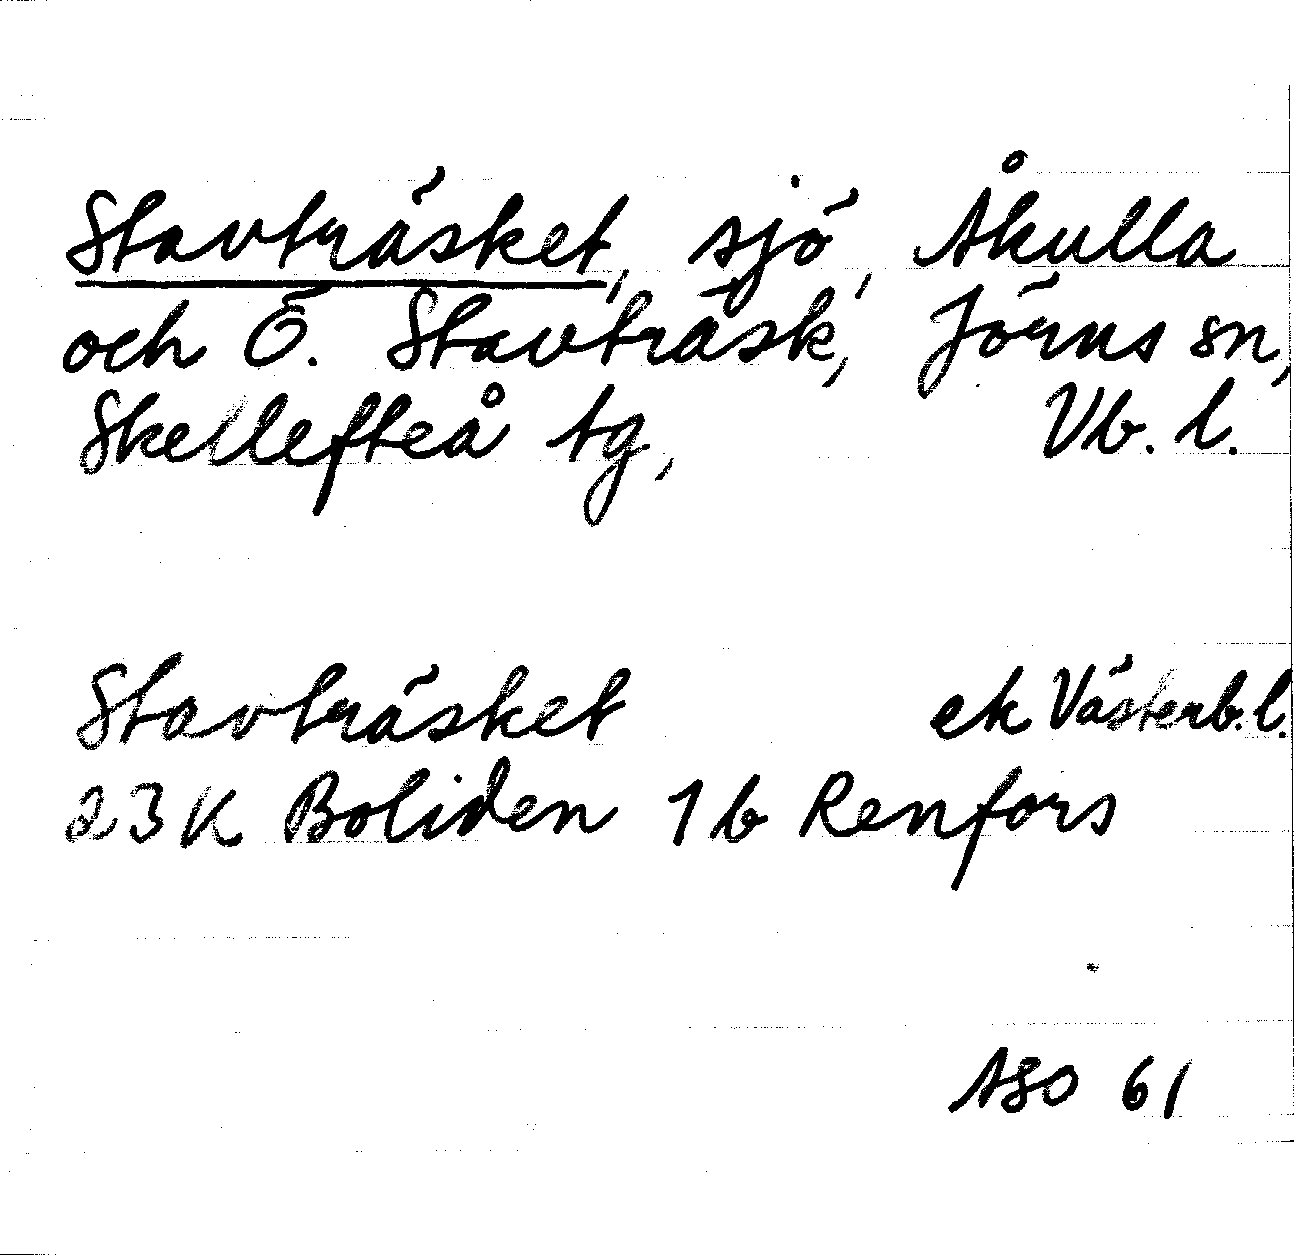 Stavträsket, sjö, Åkulla
och Ö. Stavträsk, Jörns sn,
Skellefteå tg, Vb. l.
Stavträsket ek Västerb. l.
23K Boliden 1b Renfors
ASO 61